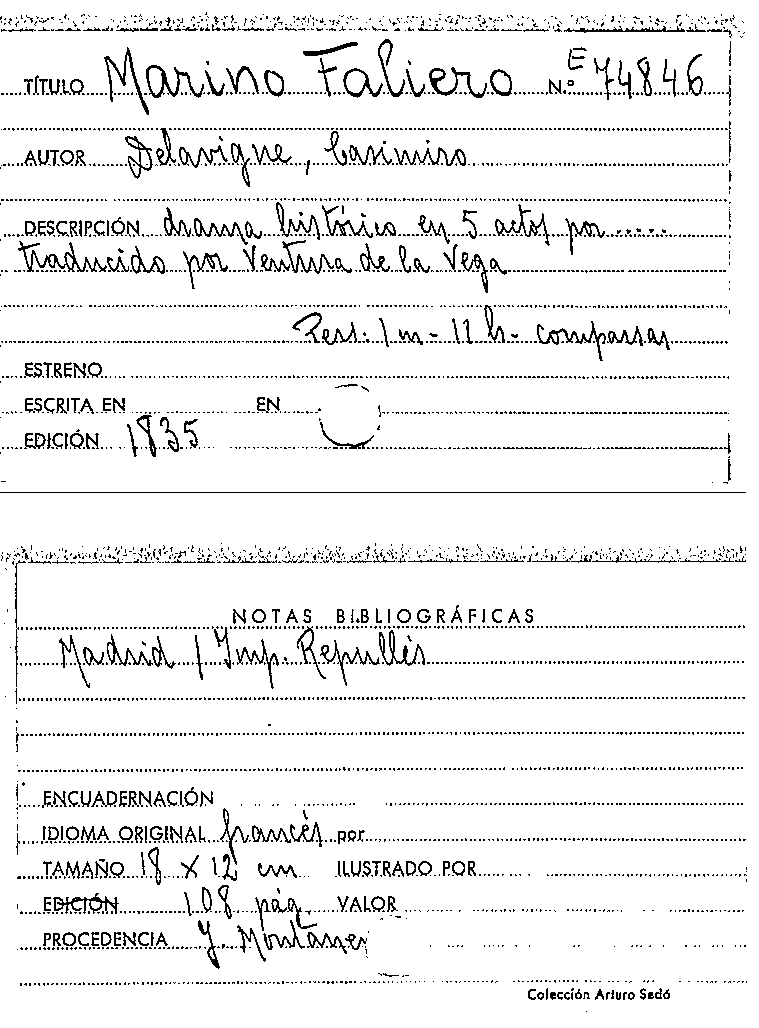 TÍTULO Marino Faliero N.º E 74846
AUTOR Delavigne, Casimiro
DESCRIPCIÓN drama histórico en 5 actos por .....
traducido por Ventura de la Vega
Pers: 1 m - 12 h - comparsas
ESTRENO
ESCRITA EN EN
EDICIÓN 1835
NOTAS BIBLIOGRÁFICAS
Madrid / Imp. Repullés
ENCUADERNACIÓN
IDIOMA ORIGINAL francés por
TAMAÑO 18 x 12 cm ILUSTRADO POR
EDICIÓN 108 pág. VALOR
PROCEDENCIA J. Montaner
Colección Arturo Sedó